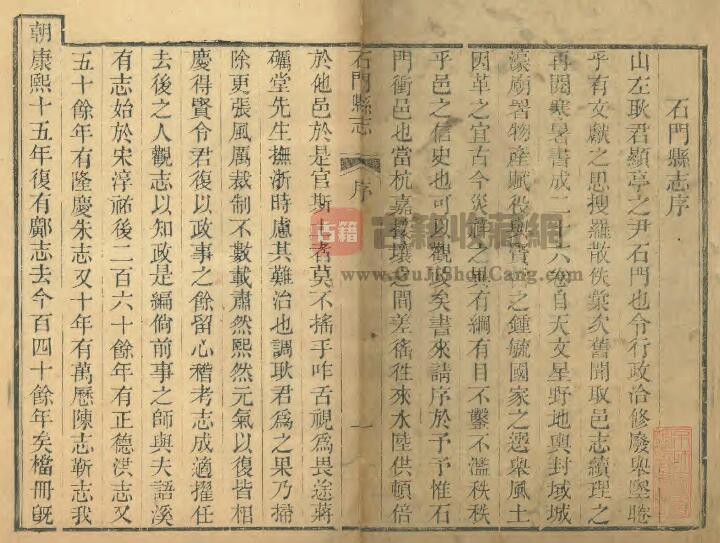 石門縣志序
山左耿君顯亭之尹石門也令行政治修廢與墜睠
乎有文獻之思搜羅散佚彚次舊聞取邑志續理之
再閱寒暑書成二十六卷自天文星野地輿封域城
濠廟署物產賦役與賢之鍾毓國家之選與風土
因革之宜古今災祥之異有綱有目不鑿不濫秩秩
乎邑之信史也可以觀政矣書來請序於予予惟石
門衝邑也當杭嘉接壤之間差徭徃來水陸供頓倍
石門縣志
序
一
於他邑於是官斯土者莫不搖手咋舌視爲畏途蔣
礪堂先生撫浙時慮其難治也調耿君爲之果乃掃
除更張風厲裁制不數載肅然熙然元氣以復皆相
慶得賢令君復以政事之餘留心稽考志成適擢任
去後之人觀志以知政是編倘前事之師與夫語溪
有志始於宋淳祐後二百六十餘年有正德洪志又
五十餘年有隆慶朱志又十年有萬歷陳志靳志我
朝康熙十五年復有鄺志去今百四十餘年矣檔冊旣
古籍
古籍收藏網
www.GuJiShuCang.com